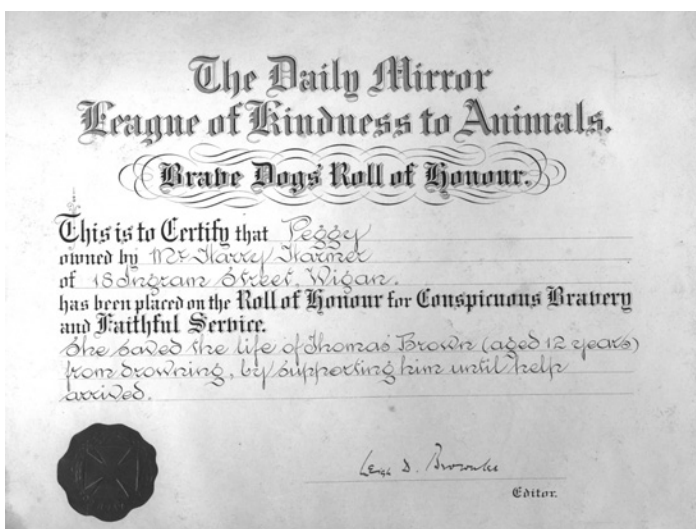 The Daily Mirror
League of Kindness to Animals.
Brave Dogs' Roll of Honour.
This is to Certify that Peggy
owned by Mr Harry Harmer
of 18 Ingram Street, Wigan.
has been placed on the Roll of Honour for Conspicuous Bravery
and Faithful Service.
She saved the life of Thomas Brown (aged 12 years)
from drowning, by supporting him until help
arrived.
Leigh D. Brownlee
Editor.